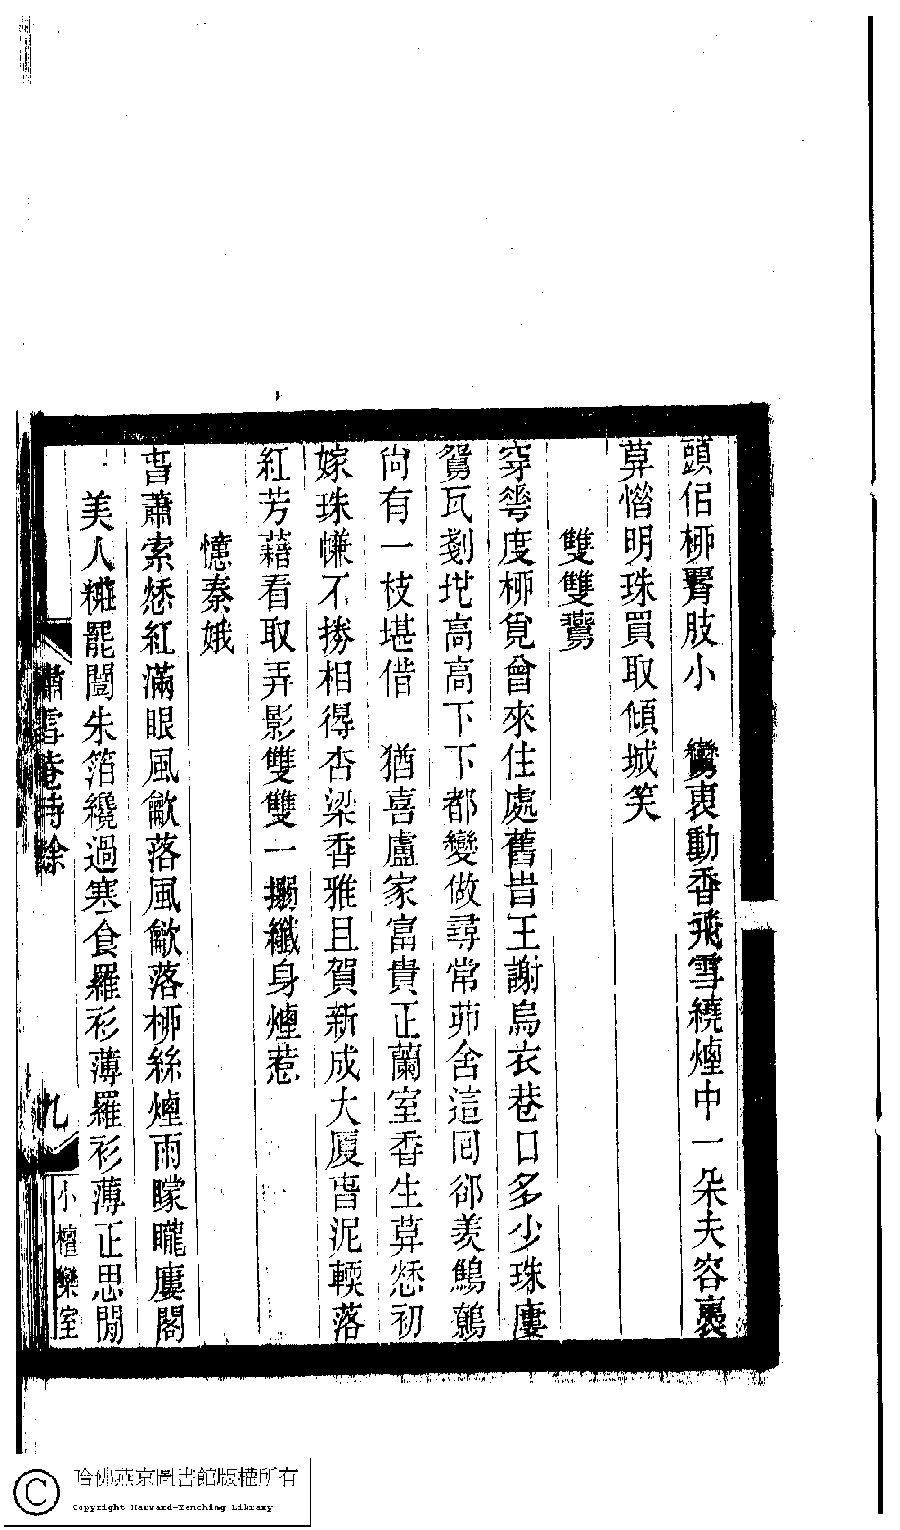 頭侶柳臂肢小　鸞衷動香飛雪繞煙中一朵夫容裏
莫惜明珠買取傾城笑
雙雙鷰
穿等度柳覓曾來住處舊昔王謝烏衣巷口多少珠廔
鴛瓦剗地高高下下都變做尋常茆舍這回郤羨鷦鷯
尙有一枝堪借　猶喜盧家富貴正蘭室香生莫愁初
嫁珠㡘不捲相得杏梁香雅且賀新成大厦舂泥輭落
紅芳藉看取弄影雙雙一搦纖身煙惹
憶秦娥
舂蕭索愁紅滿眼風歙落風歙落柳絲煙雨朦朧廔閣
美人糚罷闓朱箔纔過寒食羅衫薄羅衫薄正思閒
繡雪菴詩餘
九
小檀欒室
哈佛燕京圖書館版權所有
Copyright Harvard-Yenching Library